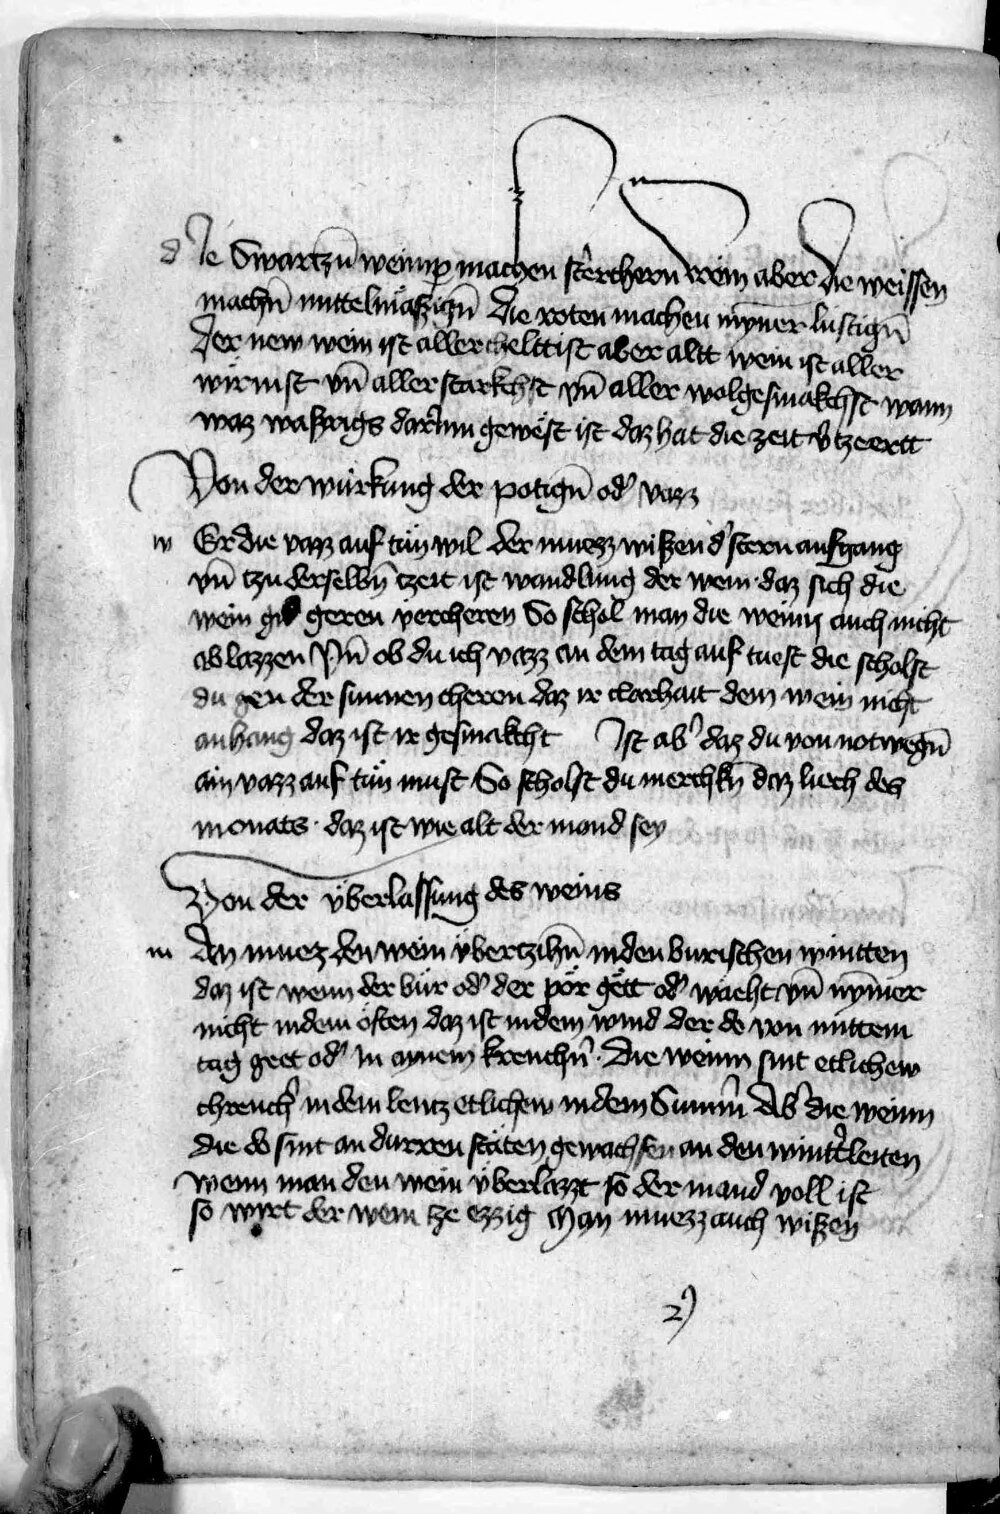 d Ie Swartzn̄ weinp̱er machen sterchern wein aber die weissen
machn̄ mittelmäszign̄ die roten machen mynner lustign̄
Der new wein ist aller cheltist aber altt wein ist aller
wirmist vn̄ aller starkchst vn̄ aller wolgesmakchst wann
waz waszrigs darinn gewest ist daz hat die zeit v̓tzeertt
Von der würkung der potign̄ od̓ vazz
w Er die vazz auf tün wil der muezz wiszen d̓ stern aufgang
vn̄ tzu derselbn̄ tzeit ist wandlung der wein daz sich die
wein geren vercheren So schol man die weinn auch nicht
ablazzen Vn̄ ob du ich vazz an dem tag auf tuest die scholst
du gen der sunnen cheren daz ir clarhait dem wein nicht
anhang daz ist ir gesmakcht Ist ab̓ daz du von notwegn̄
ain vazz auf tün must So scholst du merchkn̄ daz liech des
monats · daz ist wie alt der mond sey
Von der überlassung des weins
m An muez den wein übertzihn̄ in den burischen wintten
daz ist wenn der bur od̓ der pör gett od̓ wäeht vn̄ nym̄er
nicht in dem osten daz ist in dem wind der do von mittem
tag geet od̓ in aynem kreuchn̄ · Die weinn sint etlichew
chrench̓ in dem lentz etlichew in dem Sum̄ Ab̓ die weinn
die do sint an durren stäten gewachsen an den wint̓leiten
wenn man den wein überlazzt so der mand voll ist
so wirt der wein tze ezzig Man muezz auch wiszen
2)